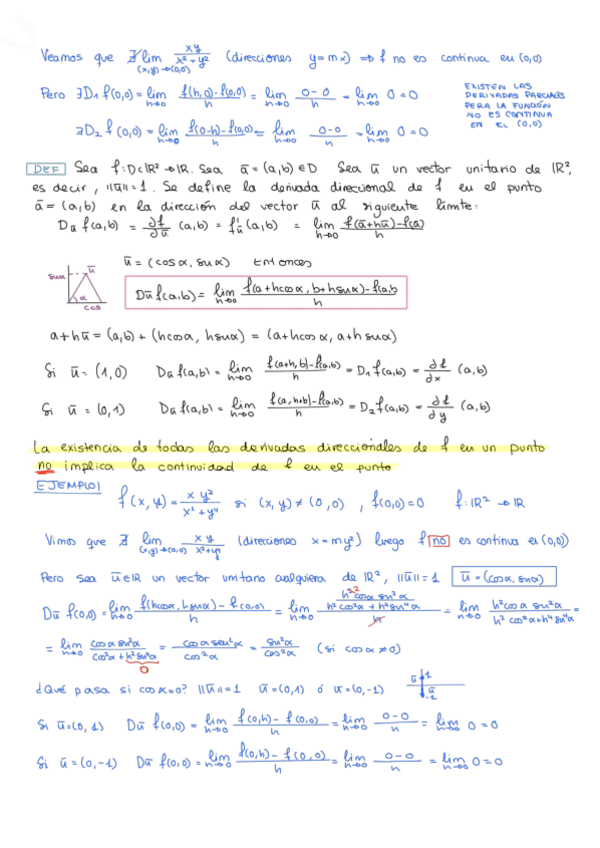 Veamos que ∄ lim (x,y)→(0,0) xy/(x²+y²) (direcciones y=mx) ⇒ f no es continua en (0,0)
Pero ∃D₁ f(0,0) = lim h→0 (f(h,0)-f(0,0))/h = lim h→0 (0-0)/h = lim h→0 0 = 0
EXISTEN LAS
DERIVADAS PARCIALES
PERA LA FUNCIÓN
NO ES CONTINUA
EN EL (0,0)
∃D₂ f(0,0) = lim h→0 (f(0-h)-f(0,0))/h = lim h→0 (0-0)/h = lim h→0 0 = 0
DEF Sea f: D⊂ℝ² → ℝ. Sea ā = (a,b) ∈ D Sea ū un vector unitario de ℝ²,
es decir, ||ū|| = 1. Se define la derivada direccional de f en el punto
ā = (a,b) en la dirección del vector ū al siguiente límite:
Dū f(a,b) = ∂f/∂ū (a,b) = f'ū (a,b) = lim h→0 (f(ā+hū)-f(ā))/h
ū = (cosα, senα) Entonces
senα ū α cos
Dū f(a,b) = lim h→0 (f(a+hcosα, b+hsenα)-f(a,b))/h
a+hū = (a,b) + (hcosα, hsenα) = (a+hcosα, a+hsenα)
Si ū = (1,0) Dū f(a,b) = lim h→0 (f(a+h,b)-f(a,b))/h = D₁f(a,b) = ∂f/∂x (a,b)
Si ū = (0,1) Dū f(a,b) = lim h→0 (f(a,h+b)-f(a,b))/h = D₂f(a,b) = ∂f/∂y (a,b)
La existencia de todas las derivadas direccionales de f en un punto
no implica la continuidad de f en el punto
EJEMPLO f(x,y) = xy²/(x²+y⁴) si (x,y)≠(0,0), f(0,0)=0 f: ℝ² → ℝ
Vimos que ∄ lim (x,y)→(0,0) xy/(x²+y⁴) (direcciones x=my²) luego f no es continua en (0,0))
Pero sea ū∈ℝ un vector unitario cualquiera de ℝ², ||ū|| = 1 ū = (cosα, senα)
Dū f(0,0) = lim h→0 (f(hcosα, hsenα) - f(0,0))/h = lim h→0 (h³ cosα sen²α/(h²cos²α + h⁴sen⁴α))/h = lim h→0 h²cosα sen²α/(h²cos²α + h⁴sen⁴α) =
= lim h→0 cosα sen²α/(cos²α + h²sen⁴α) = cosα sen²α/cos²α = sen²α/cos²α (si cosα≠0)
0
¿Qué pasa si cosα=0? ||ū||=1 ū=(0,1) ó ū=(0,-1) ū 1 ū -1
Si ū=(0,1) Dū f(0,0) = lim h→0 (f(0,h) - f(0,0))/h = lim h→0 (0-0)/h = lim h→0 0 = 0
Si ū=(0,-1) Dū f(0,0) = lim h→0 (f(0,h) - f(0,0))/h = lim h→0 (0-0)/h = lim h→0 0 = 0